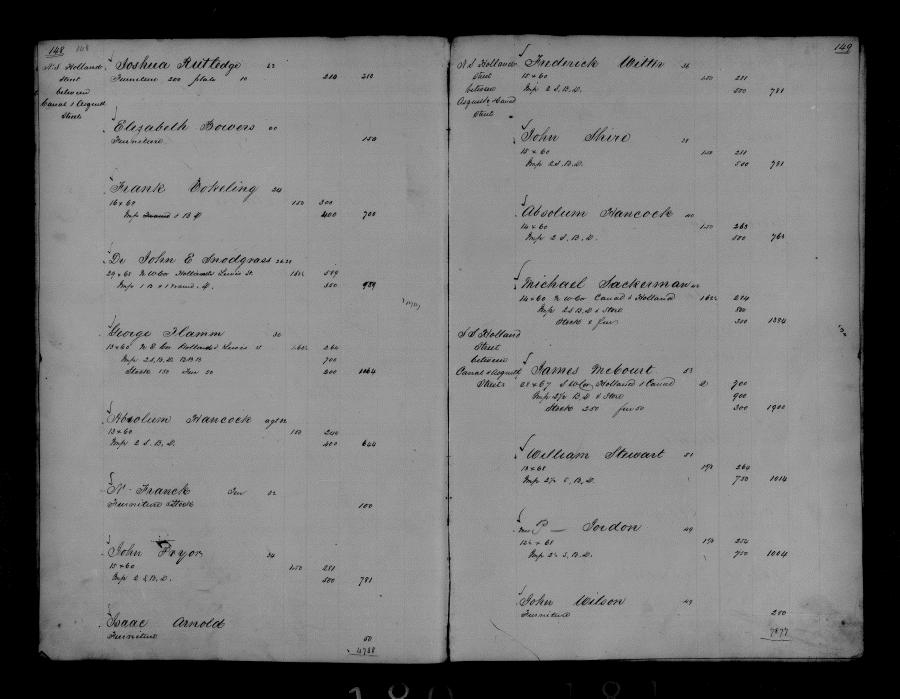 148 148
N.S Holland
Street
between
Canal & Asquith
Street
Joshua Rutledge 22
Furniture 200 plate 10 210 210
Elizabeth Bowers 20
Furniture 150
Frank Eckeling 24
16 x 60 150 300
Imp 1 B.D 400 700
Dr John E Snodgrass
29 x 65 N W Cor Holland & Lewis St. 589
Imp 350 939
George Hamm 30
13 x 60 N E Cor Holland & Lewis st 264
Imp 2 S.B.D 700
Stock 150 Fur 50 200 1064
Absolum Hancock
13 x 60 150 244
Imp 2 S.B.D. 400 644
N Franck 32
Furniture & Stock 100
John Pryor 34
15 x 60 150 281
Imp 2 S.B.D. 500 781
Isaac Arnold
Furniture 50
4738
149
N S Holland
Street
between
Asquith & Canal
Street
Frederick Witter 36
15 x 60 150 281
Imp 2 S.B.D. 500 781
John Shire 38
15 x 60 150 281
Imp 2 S.B.D. 500 781
Absolum Hancock 40
14 x 60 150 263
Imp 2 S.B.D. 500 763
Michael Sackerman
14 x 60 N W Cor Canal & Holland 284
Imp 2 S B D & Store 800
Stock & fur 300 1384
S S Holland
Street
between
Canal & Asquith
Street
James McCourt 53
28 x 67 S W Cor Holland & Canal 700
Imp 2½ B.D & Store 900
Stock 250 fur 50 300 1900
William Stewart 51
13 x 68 264
Imp 2½ S.B.D. 750 1014
Mrs P — Jordon 49
12½ x 68 254
Imp 2½ S.B.D. 750 1004
John Wilson 49
Furniture 250
7877